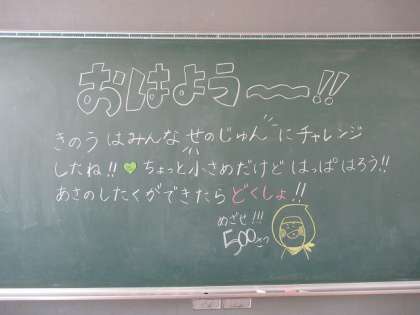 おはよう〜!!
きのうはみんなせのじゅんにチャレンジ
したね!!♥ちょっと小さめだけどはっぱはろう!!
あさのしたくができたらどくしょ!!
めざせ!!!
500さつ